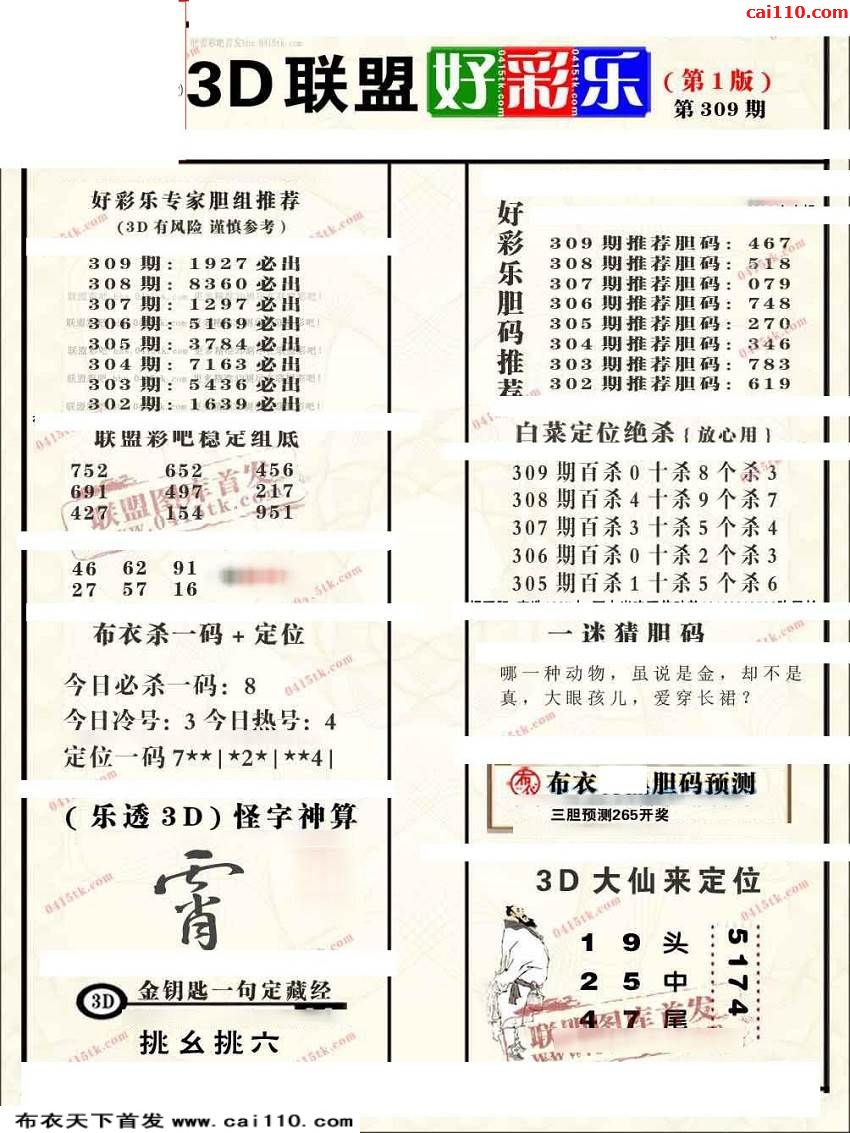 cai110.com
3D联盟好彩乐
(第1版)
第309期
好彩乐专家胆组推荐
(3D有风险 谨慎参考)
309期: 1927必出
308期: 8360必出
307期: 1297必出
306期: 5169必出
305期: 3784必出
304期: 7163必出
303期: 5436必出
302期: 1639必出
联盟彩吧稳定组底
752 652 456
691 497 217
427 154 951
46 62 91
27 57 16
布衣杀一码+定位
今日必杀一码: 8
今日冷号: 3 今日热号: 4
定位一码 7**|*2*|**4|
(乐透3D)怪字神算
霄
3D 金钥匙一句定藏经
挑幺挑六
好彩乐胆码推荐
309期推荐胆码: 467
308期推荐胆码: 518
307期推荐胆码: 079
306期推荐胆码: 748
305期推荐胆码: 270
304期推荐胆码: 346
303期推荐胆码: 783
302期推荐胆码: 619
白菜定位绝杀{放心用}
309期百杀0十杀8个杀3
308期百杀4十杀9个杀7
307期百杀3十杀5个杀4
306期百杀0十杀2个杀3
305期百杀1十杀5个杀6
一迷猜胆码
哪一种动物，虽说是金，却不是
真，大眼孩儿，爱穿长裙？
布衣 胆码预测
三胆预测265开奖
3D大仙来定位
1 9 头
2 5 中
4 7 尾
5174
联盟图库首发
www.0415tk.com
0415tk.com
布衣天下首发 www.cai110.com